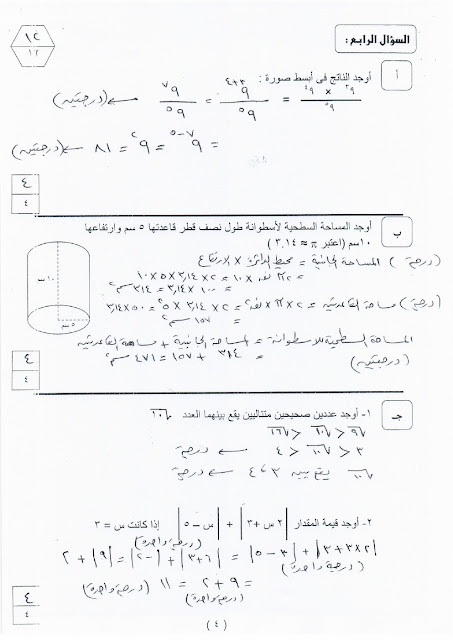 ١٢
١٢
السؤال الرابع :
أ
أوجد الناتج في أبسط صورة :
٩^٣ × ٩^٤ / ٩^٥ = ٩^(٣+٤) / ٩^٥ = ٩^٧ / ٩^٥ (درجتين)
= ٩^(٧-٥) = ٩^٢ = ٨١ (درجتين)
٤
٤
ب
أوجد المساحة السطحية لأسطوانة طول نصف قطر قاعدتها ٥ سم وارتفاعها
١٠ سم (اعتبر π ≈ ٣,١٤)
١٠ سم
٥ سم
(درجة) المساحة الجانبية = محيط الدائرة × الارتفاع
= ٢ π نق × ١٠ = ٢ × ٣,١٤ × ٥ × ١٠
= ١٠٠ × ٣,١٤ = ٣١٤ سم٢
(درجة) مساحة القاعدتين = ٢ × π × نق٢ = ٢ × ٣,١٤ × ٥^٢ = ٥٠ × ٣,١٤
= ١٥٧ سم٢
المساحة السطحية للاسطوانة = المساحة الجانبية + مساحة القاعدتين
= ٣١٤ + ١٥٧ = ٤٧١ سم٢
(درجتين)
٤
٤
جـ
١- أوجد عددين صحيحين متتاليين يقع بينهما العدد √١٠
√٩ < √١٠ < √١٦
٣ < √١٠ < ٤ درجة
√١٠ يقع بين ٣ ، ٤ درجة
٢- أوجد قيمة المقدار |٢ س + ٣| + |س - ٥| إذا كانت س = ٣
(درجة واحدة)
|٢×٣ + ٣| + |٣ - ٥| = |٦ + ٣| + |-٢| = |٩| + ٢
(درجة واحدة)
= ٩ + ٢ = ١١ (درجة واحدة)
(درجة واحدة)
٤
٤
(٤)